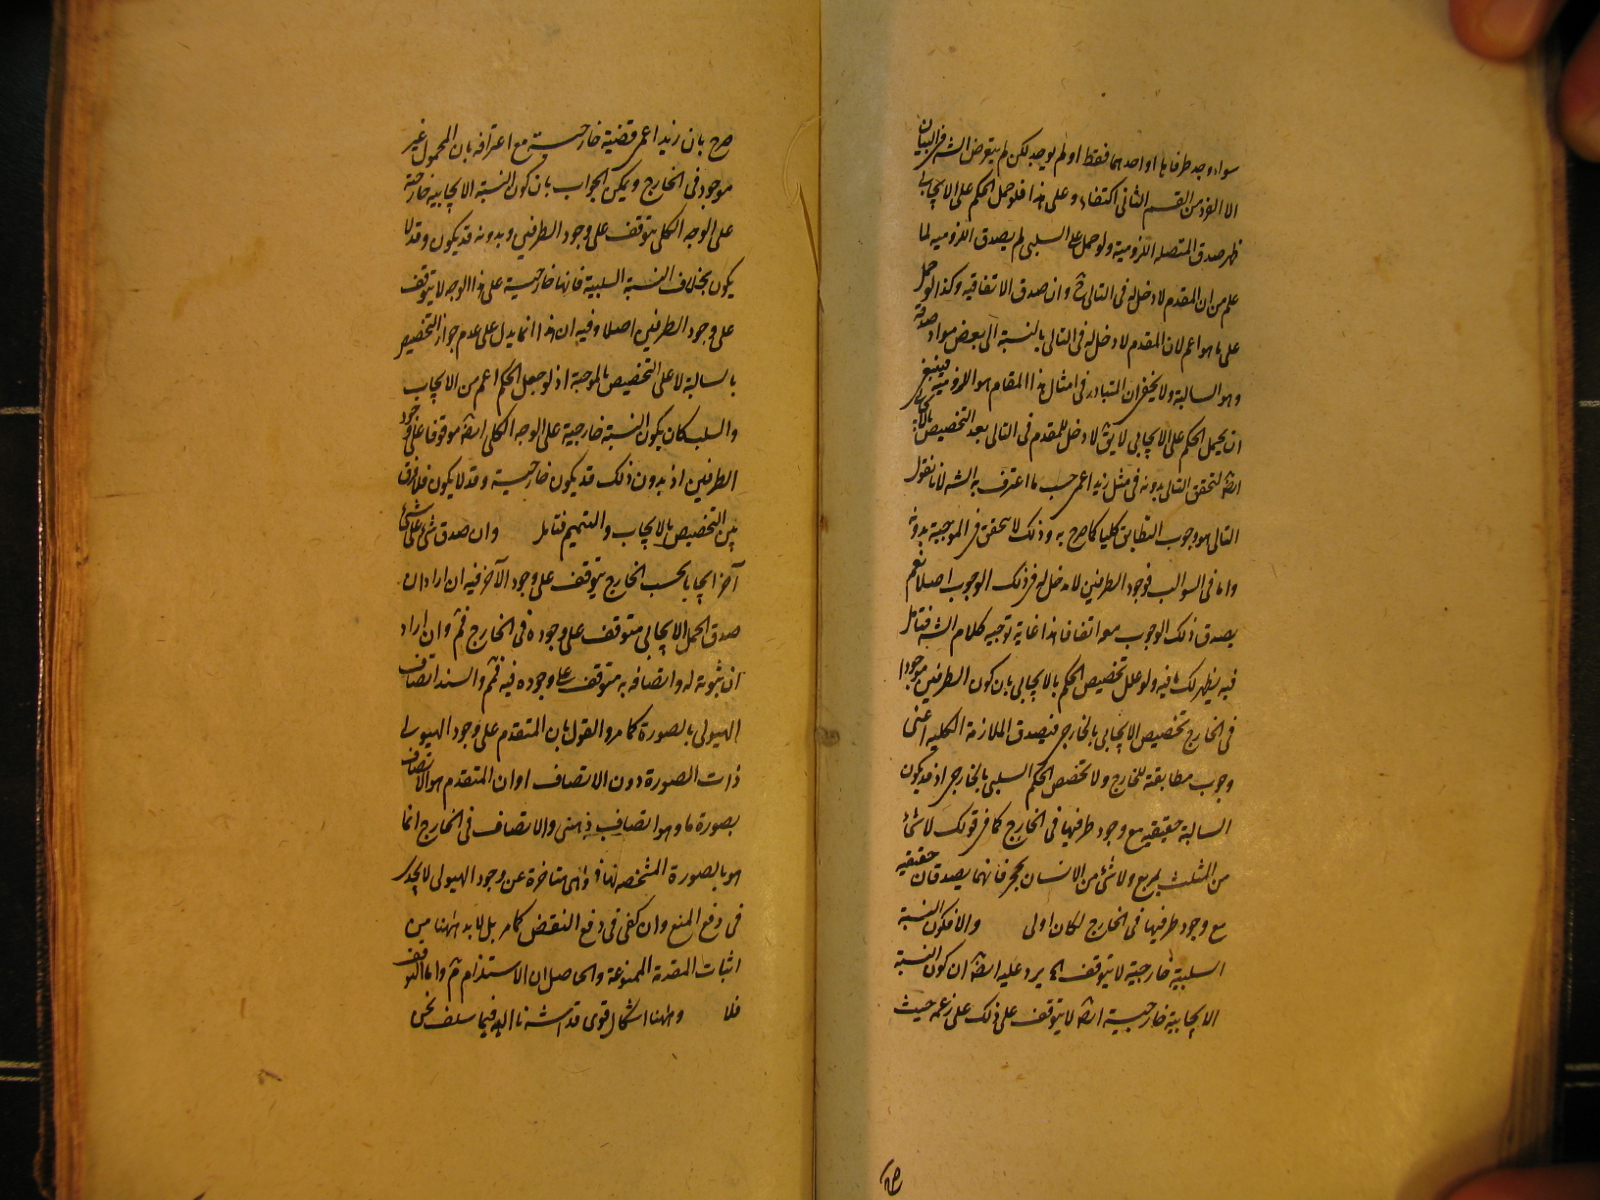 سواء وجد طرفاها او احدهما فقط او لم يوجد لكن لم يتعرض الش في البيان
الا الفرد من القسم الثاني اكتفاء وعلى هذا فلو حمل الحكم على الايجابي
ظهر صدق المتصلة اللزومية ولو حمل على السلبي لم يصدق اللزومية لما
علم من ان المقدم لا دخل له في التالي ح وان صدق الاتفاقية وكذا لو حمل
على ما هو اعم لان المقدم لا دخل له في التالي بالنسبة الى بعض مواد صدقه
وهو السالبة ولا يخفى ان المتبادر في امثال هذا المقام هو اللزومية فينبغي
ان يحمل الحكم على الايجابي لا يق لا دخل للمقدم في التالي بعد التخصيص بالايجابي
ايضا لتحقق التالي بدونه في مثل زيد اعمى حسب ما اعترف به الش لانا نقول
التالي هو وجوب التطابق كليا كما صرح به وذلك لا يتحقق في الموجبة بدونه
واما في السوالب فوجود الطرفين لا مدخل له في ذلك الوجوب اصلا نعم
يصدق ذلك الوجوب معه اتفاقا هذا غاية توجيه كلام الش فتامل
فيه يظهر لك ما فيه ولو علل تخصيص الحكم بالايجابي بان كون الطرفين موجودا
في الخارج تخصيص الايجابي بالخارجي فيصدق الملازمة الكلية اعني
وجوب مطابقته للخارج ولا تخصص الحكم السلبي بالخارجي اذ قد يكون
السالبة حقيقية مع وجود طرفيها في الخارج كما في قولك لا شئ
من المثلث بمربع ولا شئ من الانسان بحجر فانهما يصدقان حقيقية
مع وجود طرفيها في الخارج لكان اولى والا فكون النسبة
السلبية خارجية لا يتوقف الخ يرد عليه ايضا ان كون النسبة
الايجابية خارجية ايضا لا يتوقف على ذلك على زعمه حيث
صرح بان زيد اعمى قضية خارجية مع اعترافه بان المحمول غير
موجود في الخارج ويمكن الجواب بان كون النسبة الايجابية خارجية
على الوجه الكلي يتوقف على وجود الطرفين وبدونه قد يكون وقد لا
يكون بخلاف النسبة السلبية فانها خارجية على هذا الوجه لا يتوقف
على وجود الطرفين اصلا وفيه ان هذا انما يدل على عدم جواز التخصيص
بالسالبة لا على التخصيص بالموجبة اذ لو جعل الحكم اعم من الايجاب
والسلب كان يكون النسبة خارجية على الوجه الكلي ايضا موقوفا على وجود
الطرفين اذ بدون ذلك قد يكون خارجية وقد لا يكون فلا فرق
بين التخصيص بالايجاب والتعميم فتامل وان صدق شئ على شئ
آخر ايجابا بحسب الخارج يتوقف على وجود الآخر فيه ان اراد ان
صدق الحمل الايجابي متوقف على وجوده في الخارج فم وان اراد
ان ثبوته له واتصافه به متوقف على وجوده فيه فمم والسند اتصاف
الهيولى بالصورة كما مر والقول بان المتقدم على وجود الهيولى
ذات الصورة دون الاتصاف او ان المتقدم هو الاتصاف
بصورة ما وهو اتصاف ذهني والاتصاف في الخارج انما
هو بالصورة المشخصة وانها متاخرة عن وجود الهيولى لا يجدي
في دفع المنع وان كفى في دفع النقض كما مر بل لا بد ههنا من
اثبات المقدمة الممنوعة والحاصل ان الاستلزام م واما التوقف
فلا وههنا اشكال قوي قد اشرنا اليه فيما سلف نحن